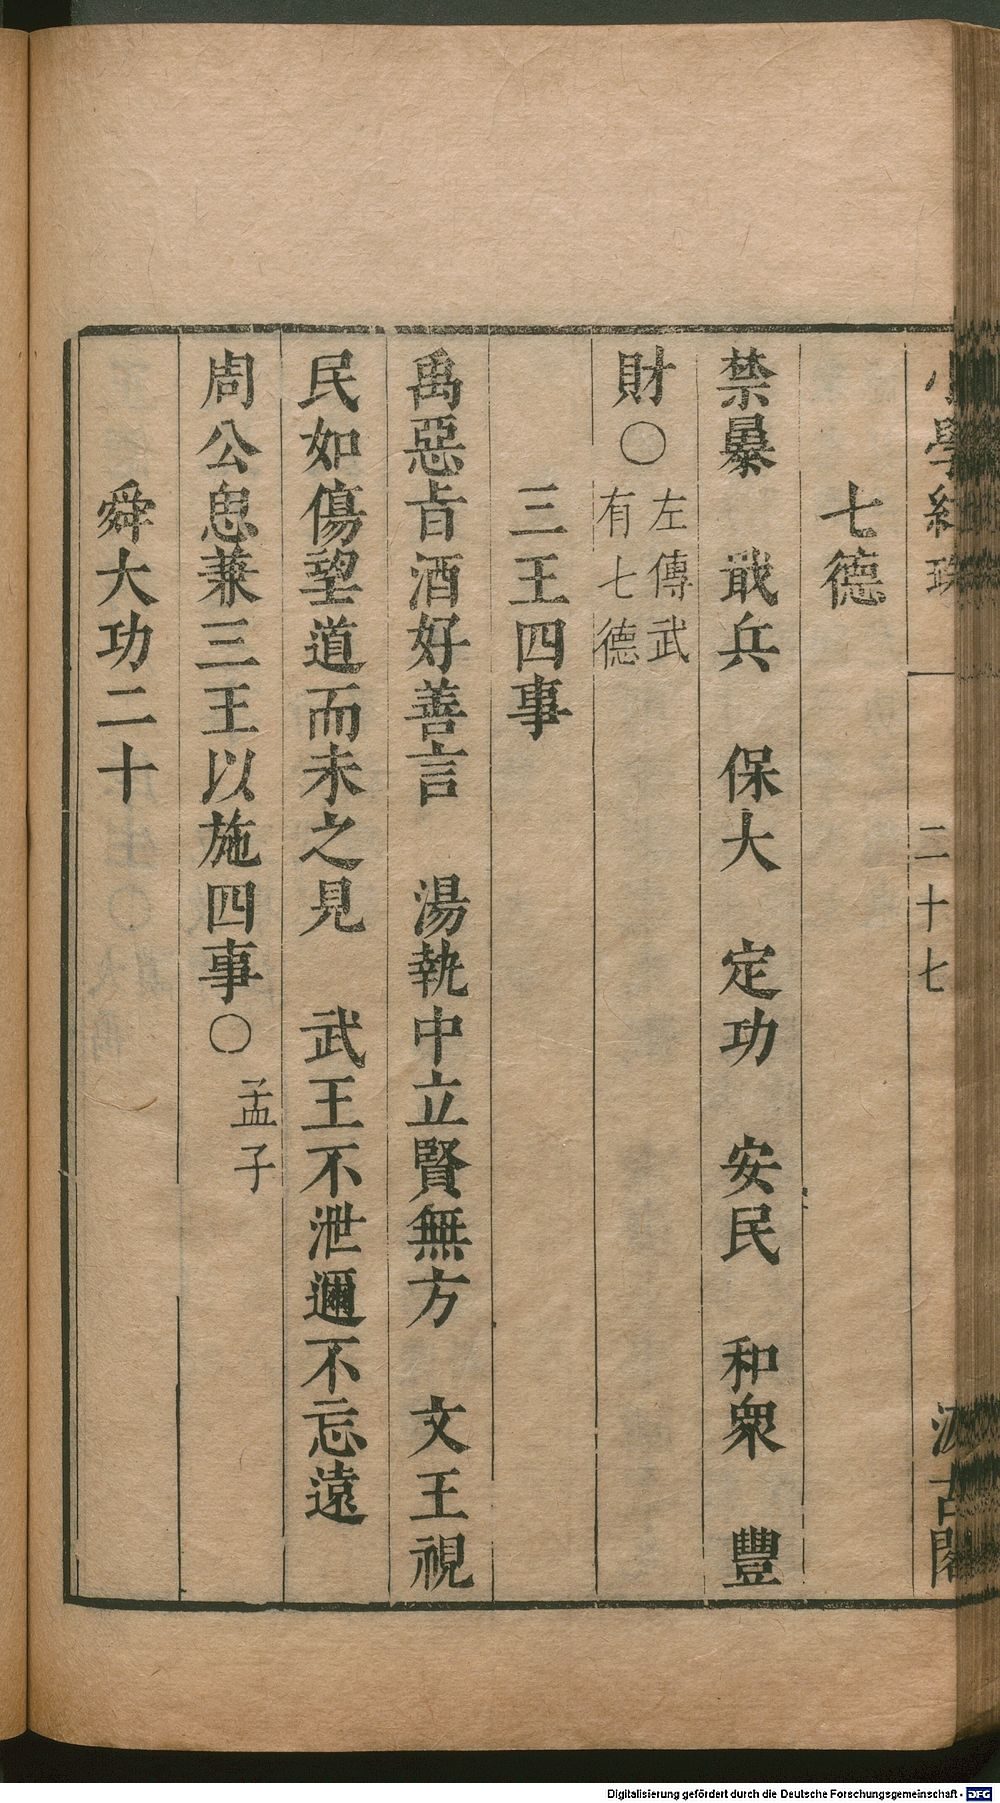 小學紺珠 二十七 汲古閣
七德
禁暴 戢兵 保大 定功 安民 和衆 豐
財○左傳武
有七德
三王四事
禹惡旨酒好善言 湯執中立賢無方 文王視
民如傷望道而未之見 武王不泄邇不忘遠
周公思兼三王以施四事○孟子
舜大功二十
Digitalisierung gefördert durch die Deutsche Forschungsgemeinschaft - DFG